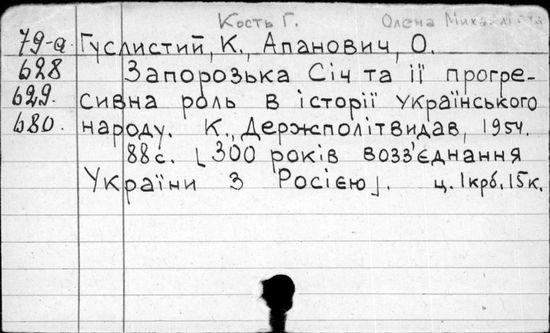 Кость Г. Олена Михайлівна
79-а Гуслистий, К., Апанович, О.
628 Запорозька Січ та її прогре-
629. сивна роль в історії українського
680. народу. К., Держполітвидав, 1954.
88с. [300 років возз'єднання
України з Росією]. ц. 1крб. 15к.